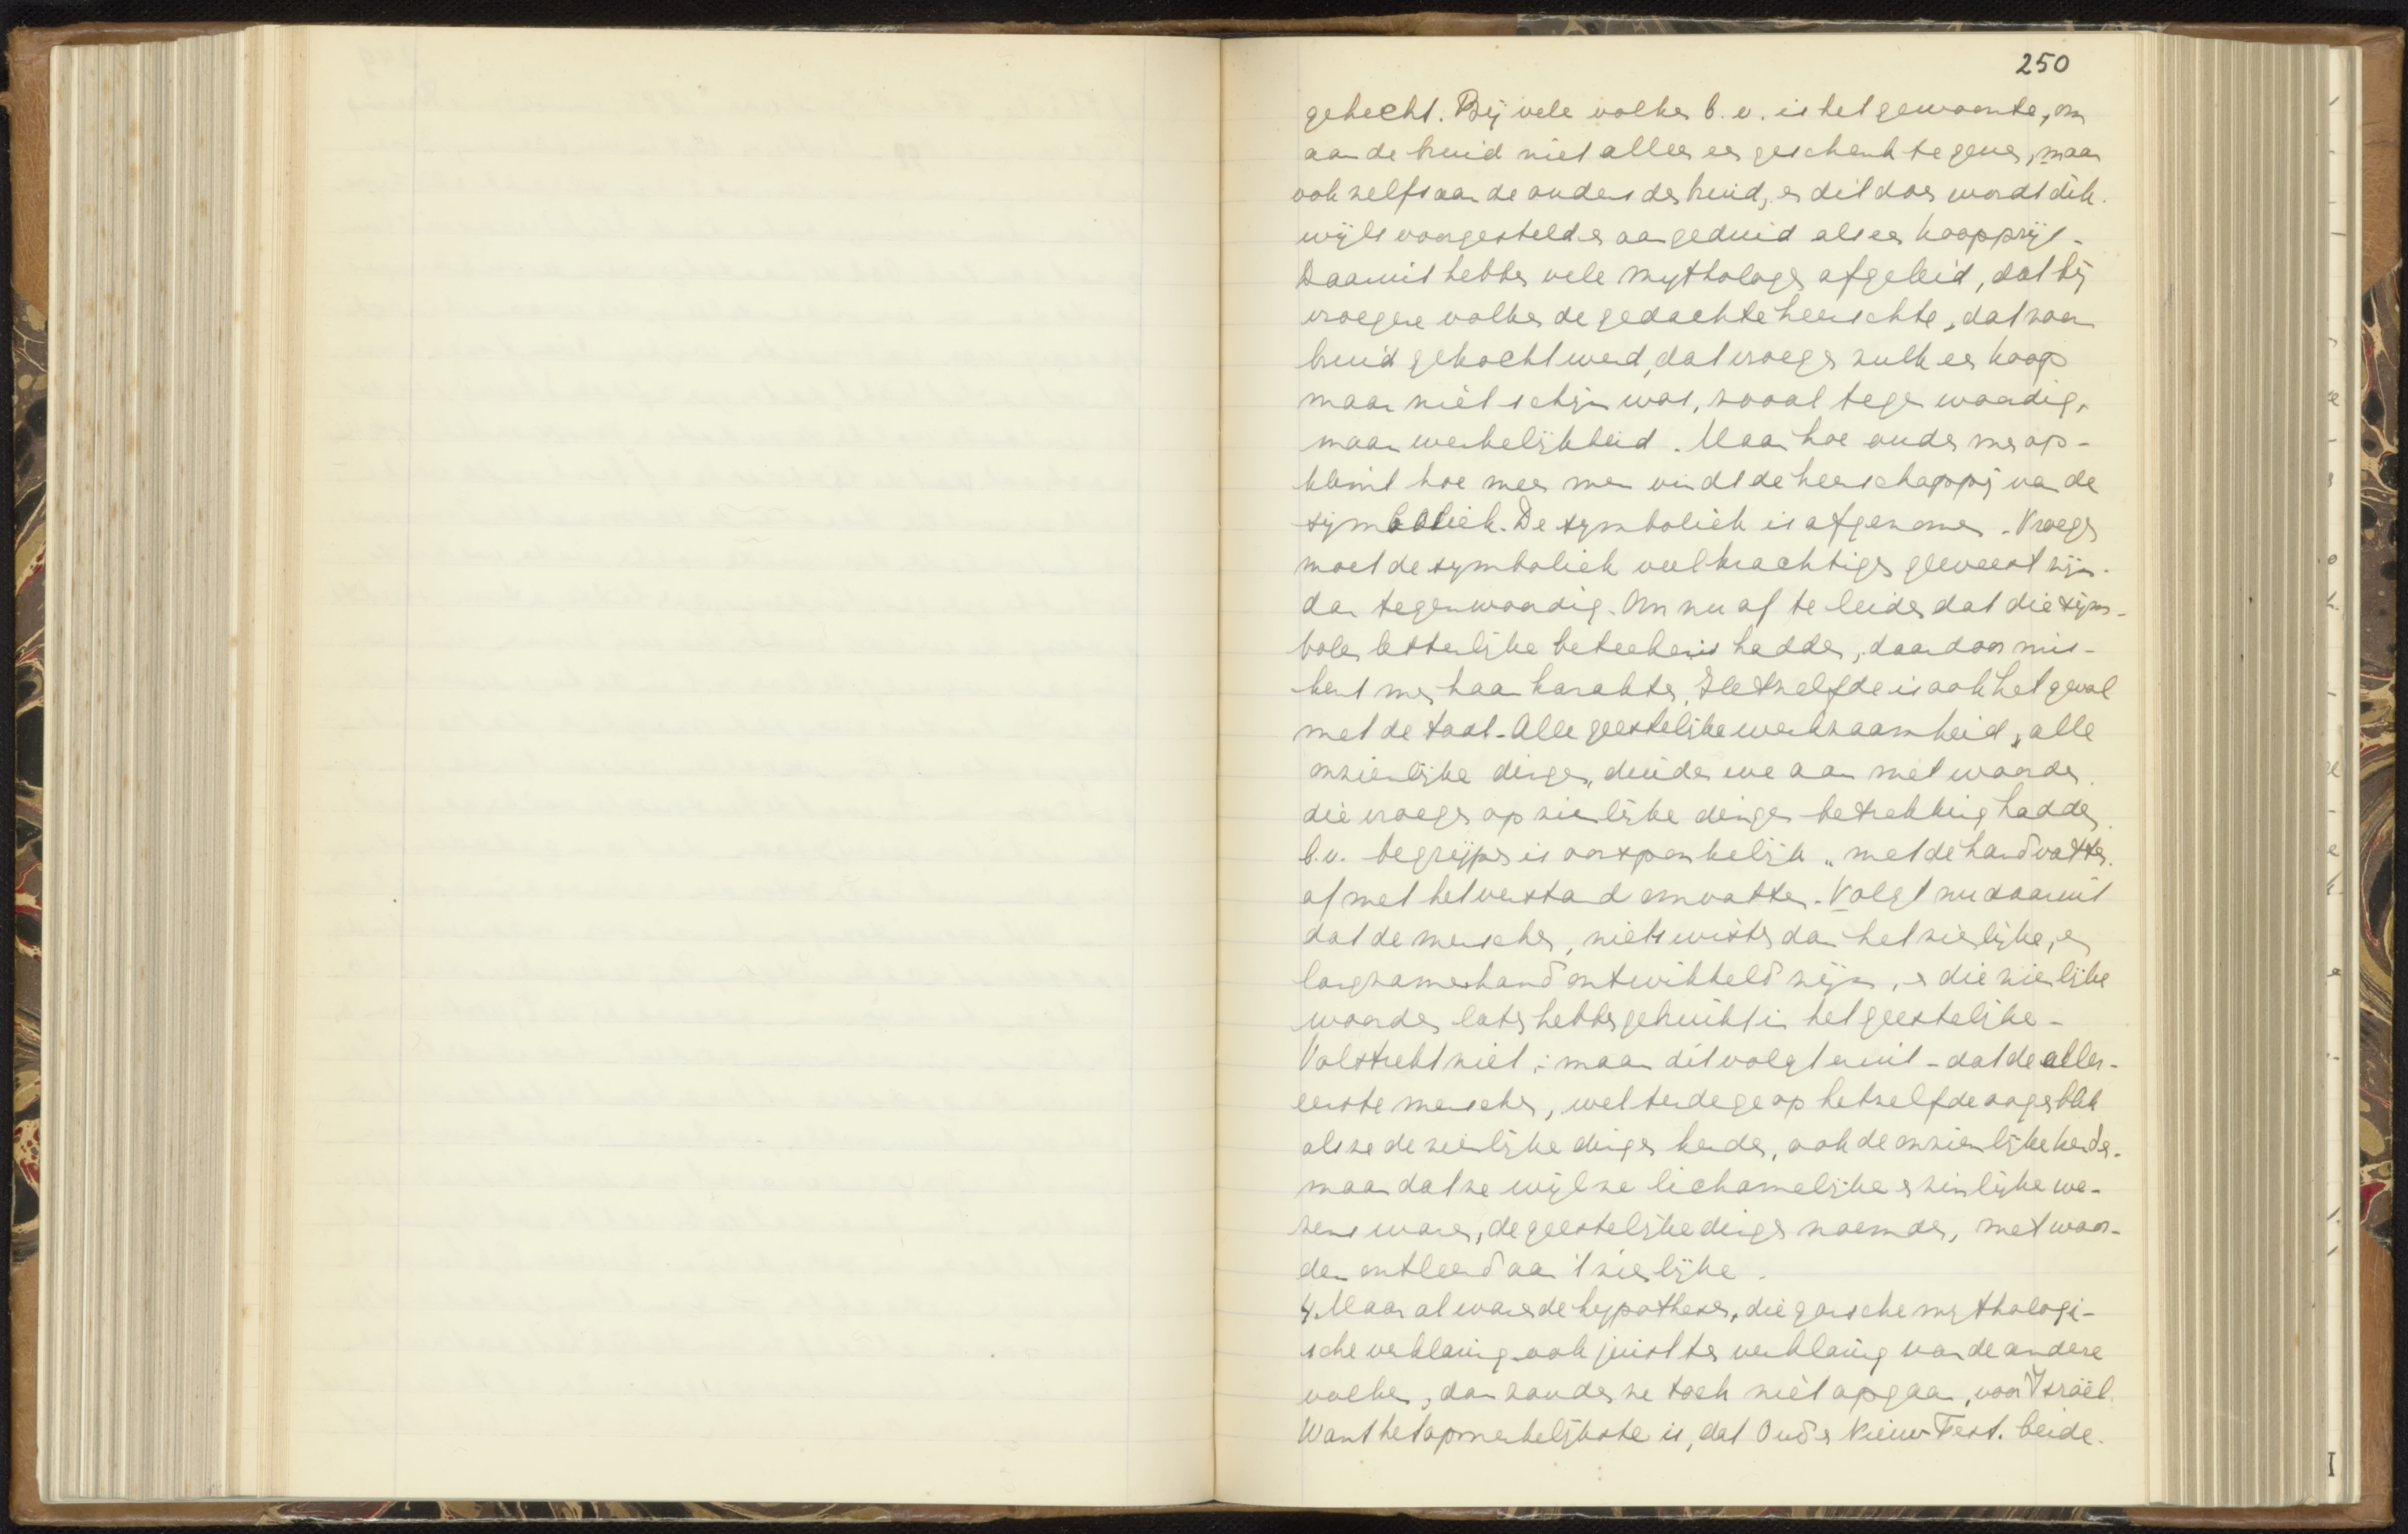 250
gehecht. Bij vele volken b.v. is het gewoonte, om
aan de bruid niet alleen een geschenk te geven, maar
ook zelfs aan de ouders der bruid, en dit dan wordt dik-
wijls voorgesteld en aangeduid als een koopprijs.
Daaruit hebben vele mythologen afgeleid, dat bij
vroegere volken de gedachte heerschte, dat zoo'n
bruid gekocht werd, dat vroeger zulk een koop
maar niet schijn was, zooals tegenwoordig,
maar werkelijkheid. Maar hoe ouder men op-
klimt hoe meer men vindt de heerschappij van de
symboliek. De symboliek is afgenomen. Vroeger
moet de symboliek veel krachtiger geweest zijn.
dan tegenwoordig. Om nu af te leiden dat die sym-
bolen letterlijke beteekenis hadden, daardoor mis-
kent men haar karakter. Hetzelfde is ook het geval
met de taal. Alle geestelijke werkzaamheid, alle
onzienlijke dingen, duiden we aan met woorden.
die vroeger op zienlijke dingen betrekking hadden.
b.v. begrijpen is oorspronkelijk „met de hand vatten.
of met het verstand omvatten. Volgt nu daaruit
dat de menschen, niets wisten dan het zienlijke, en
langzamerhand ontwikkeld zijn, en die zienlijke
woorden later hebben gebruikt in het geestelijke.
Volstrekt niet; maar dit volgt eruit - dat de aller-
eerste menschen, wel terdege op hetzelfde oogenblik
als ze de zienlijke dingen kenden, ook de onzienlijke kenden.
maar dat ze wijl ze lichamelijke en zinlijke we-
zens waren, de geestelijke dingen noemden, met woor-
den ontleend aan 't zienlijke.
4. Maar al waren de hypothesen, die gansche mythologi-
sche verklaring ook juist ter verklaring van de andere
volken, dan zouden ze toch niet opgaan, voor Israël.
Want het opmerkelijkste is, dat Oud en Nieuw Test. beide.